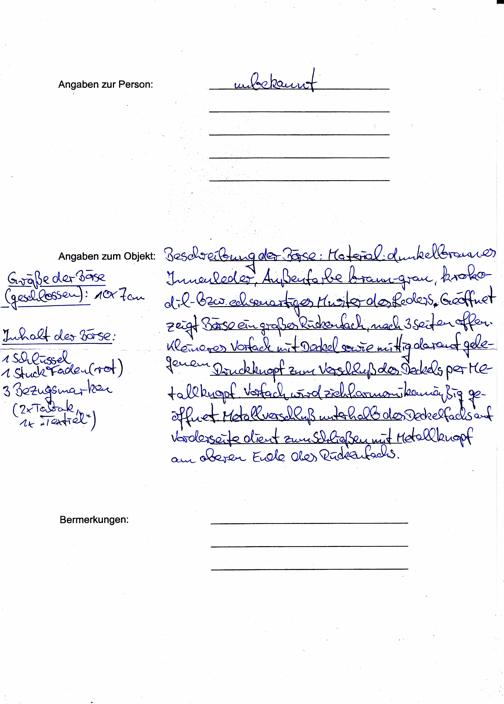 Angaben zur Person:
unbekannt
Angaben zum Objekt:
Beschreibung der Börse: Material: dunkelbraunes
Innenleder, Außenfarbe braun-grau, kroko-
dil- bzw. echsenartiges Muster des Leders, Geöffnet
zeigt Börse ein großes Rückenfach, nach 3 Seiten offen.
Kleineres Vorfach mit Deckel sowie mittig darauf gele-
genem Druckknopf zum Verschluß des Deckels per Me-
tallknopf. Vorfach wird ziehharmonikamäßig ge-
öffnet. Metallverschluß unterhalb des Deckelfachs auf
Vorderseite dient zum Schließen mit Metallknopf
am oberen Ende des Rückenfachs.
Größe der Börse
(geschlossen): 10x7cm
Inhalt der Börse:
1 Schlüssel
1 Stück Faden (rot)
3 Bezugsmarken
(2x Tabak,
1x "Textiel")
Bermerkungen: